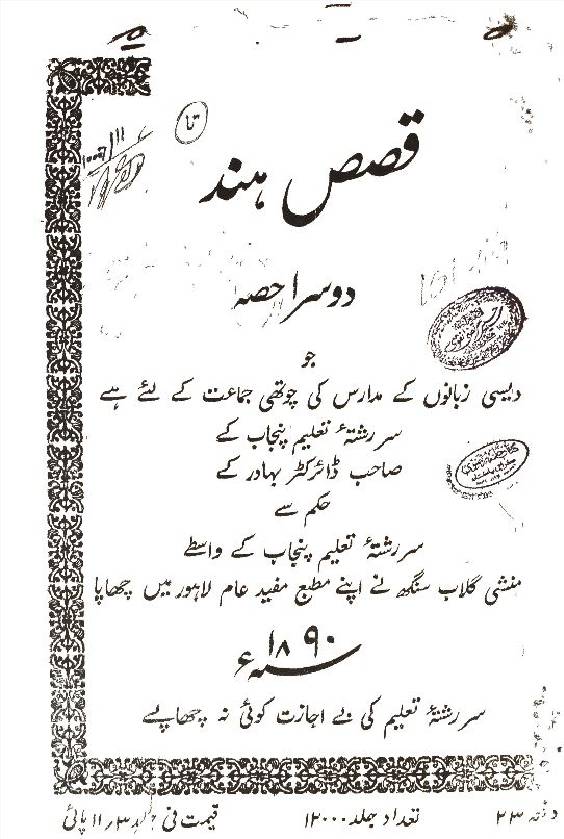 قصص ہند
دوسرا حصہ
جو
دیسی زبانوں کے مدارس کی چوتھی جماعت کے لئے ہے
سررشتۂ تعلیم پنجاب کے
صاحب ڈائرکٹر بہادر کے
حکم سے
سررشتۂ تعلیم پنجاب کے واسطے
منشی گلاب سنگھ نے اپنے مطبع مفید عام لاہور میں چھاپا
سنہ ۱۸۹۰ء
سررشتۂ تعلیم کی بے اجازت کوئی نہ چھاپے
دفعہ ۲۳ تعداد جلد ۱۲۰۰۰ قیمت فی جلد ۳؍ ۱۱ پائی